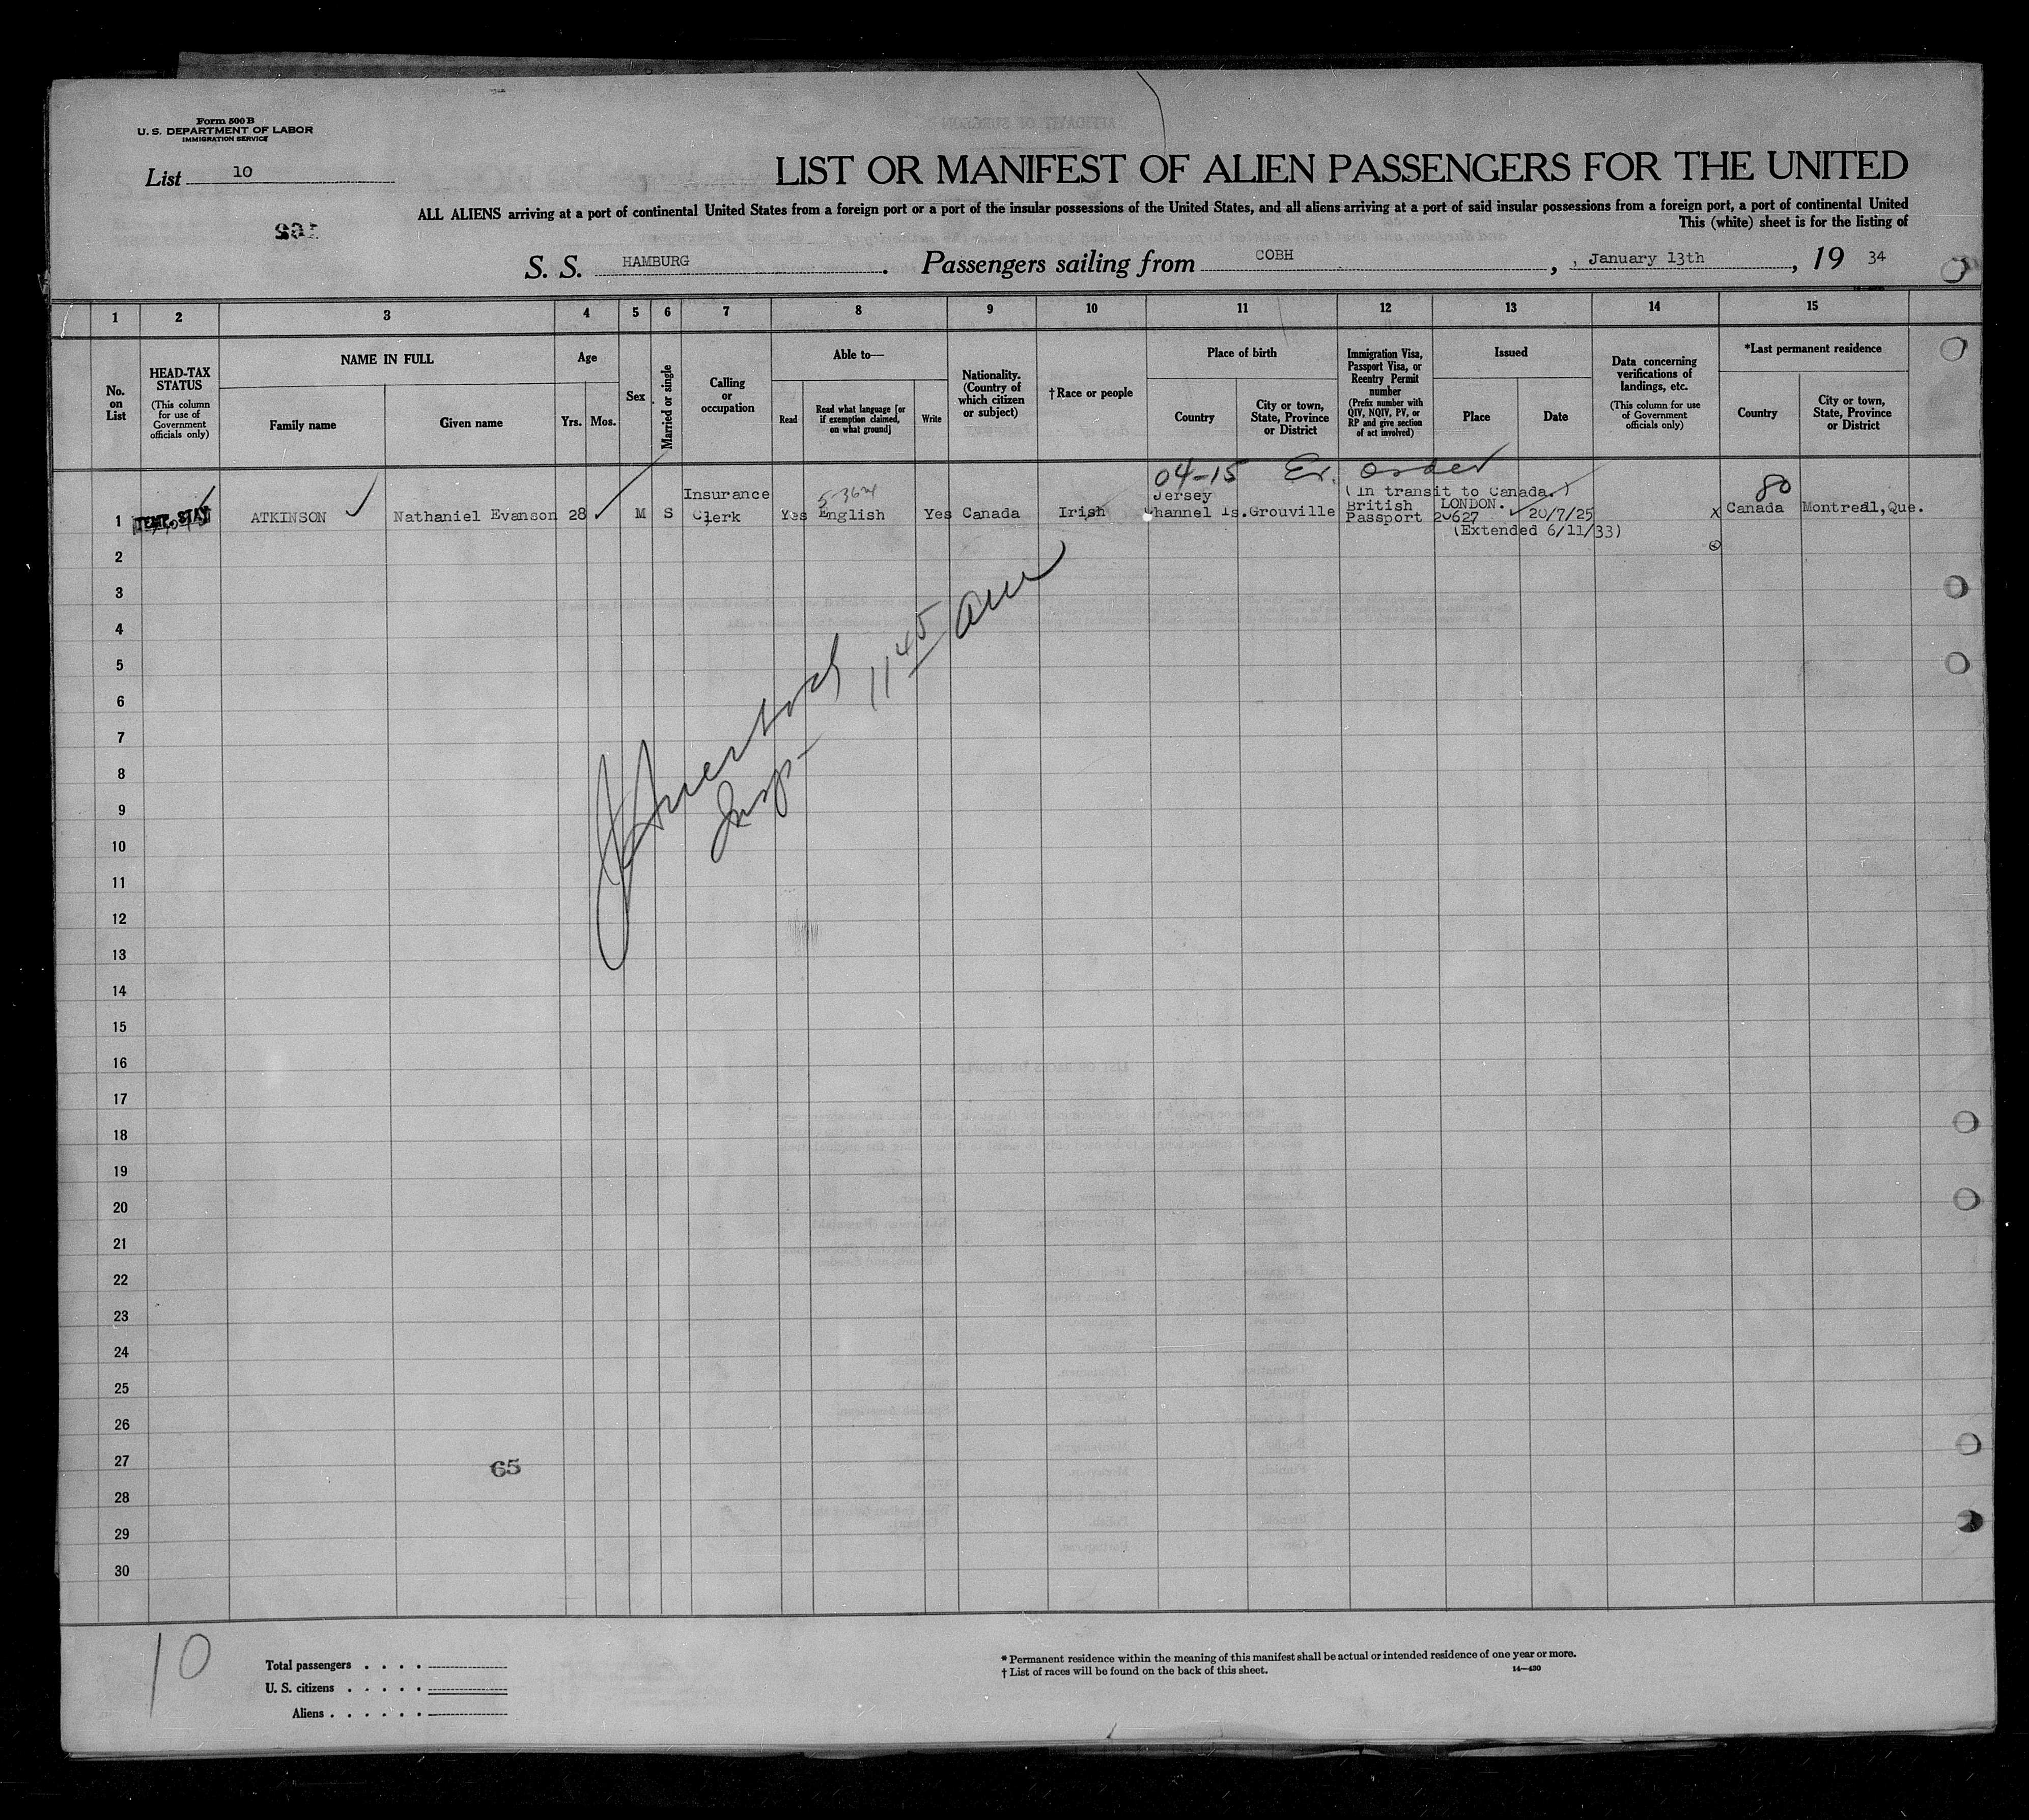 Form 500 B
U. S. DEPARTMENT OF LABOR
IMMIGRATION SERVICE
List 10
LIST OR MANIFEST OF ALIEN PASSENGERS FOR THE UNITED
ALL ALIENS arriving at a port of continental United States from a foreign port or a port of the insular possessions of the United States, and all aliens arriving at a port of said insular possessions from a foreign port, a port of continental United
This (white) sheet is for the listing of
S. S. HAMBURG. Passengers sailing from COBH, , January 13th, 19 34
1 2 3 4 5 6 7 8 9 10 11 12 13 14 15
No. on List
HEAD-TAX STATUS
(This column for use of Government officials only)
NAME IN FULL
Family name
Given name
Age
Yrs. Mos.
Sex
Married or single
Calling or occupation
Able to—
Read
Read what language [or if exemption claimed, on what ground]
Write
Nationality. (Country of which citizen or subject)
† Race or people
Place of birth
Country
City or town, State, Province or District
Immigration Visa, Passport Visa, or Reentry Permit number
(Prefix number with QIV, NQIV, PV, or RP and give section of act involved)
Issued
Place
Date
Data concerning verifications of landings, etc.
(This column for use of Government officials only)
*Last permanent residence
Country
City or town, State, Province or District
04-15 Ex. order
1 TEMP. STAY ATKINSON Nathaniel Evanson 28 M S Insurance Clerk Yes English Yes Canada Irish Jersey Channel Is. Grouville British Passport 20627 (In transit to Canada.) LONDON. 20/7/25 X Canada Montreal, Que.
(Extended 6/11/33)
80
2
3
4
5
6
7
8
9
10
11
12
13
14
15
16
17
18
19
20
21
22
23
24
25
26
27
28
29
30
11 45 am
Insp-
65
10
Total passengers . . . .
U. S. citizens . . . . .
Aliens . . . . . .
* Permanent residence within the meaning of this manifest shall be actual or intended residence of one year or more.
† List of races will be found on the back of this sheet.
14—430